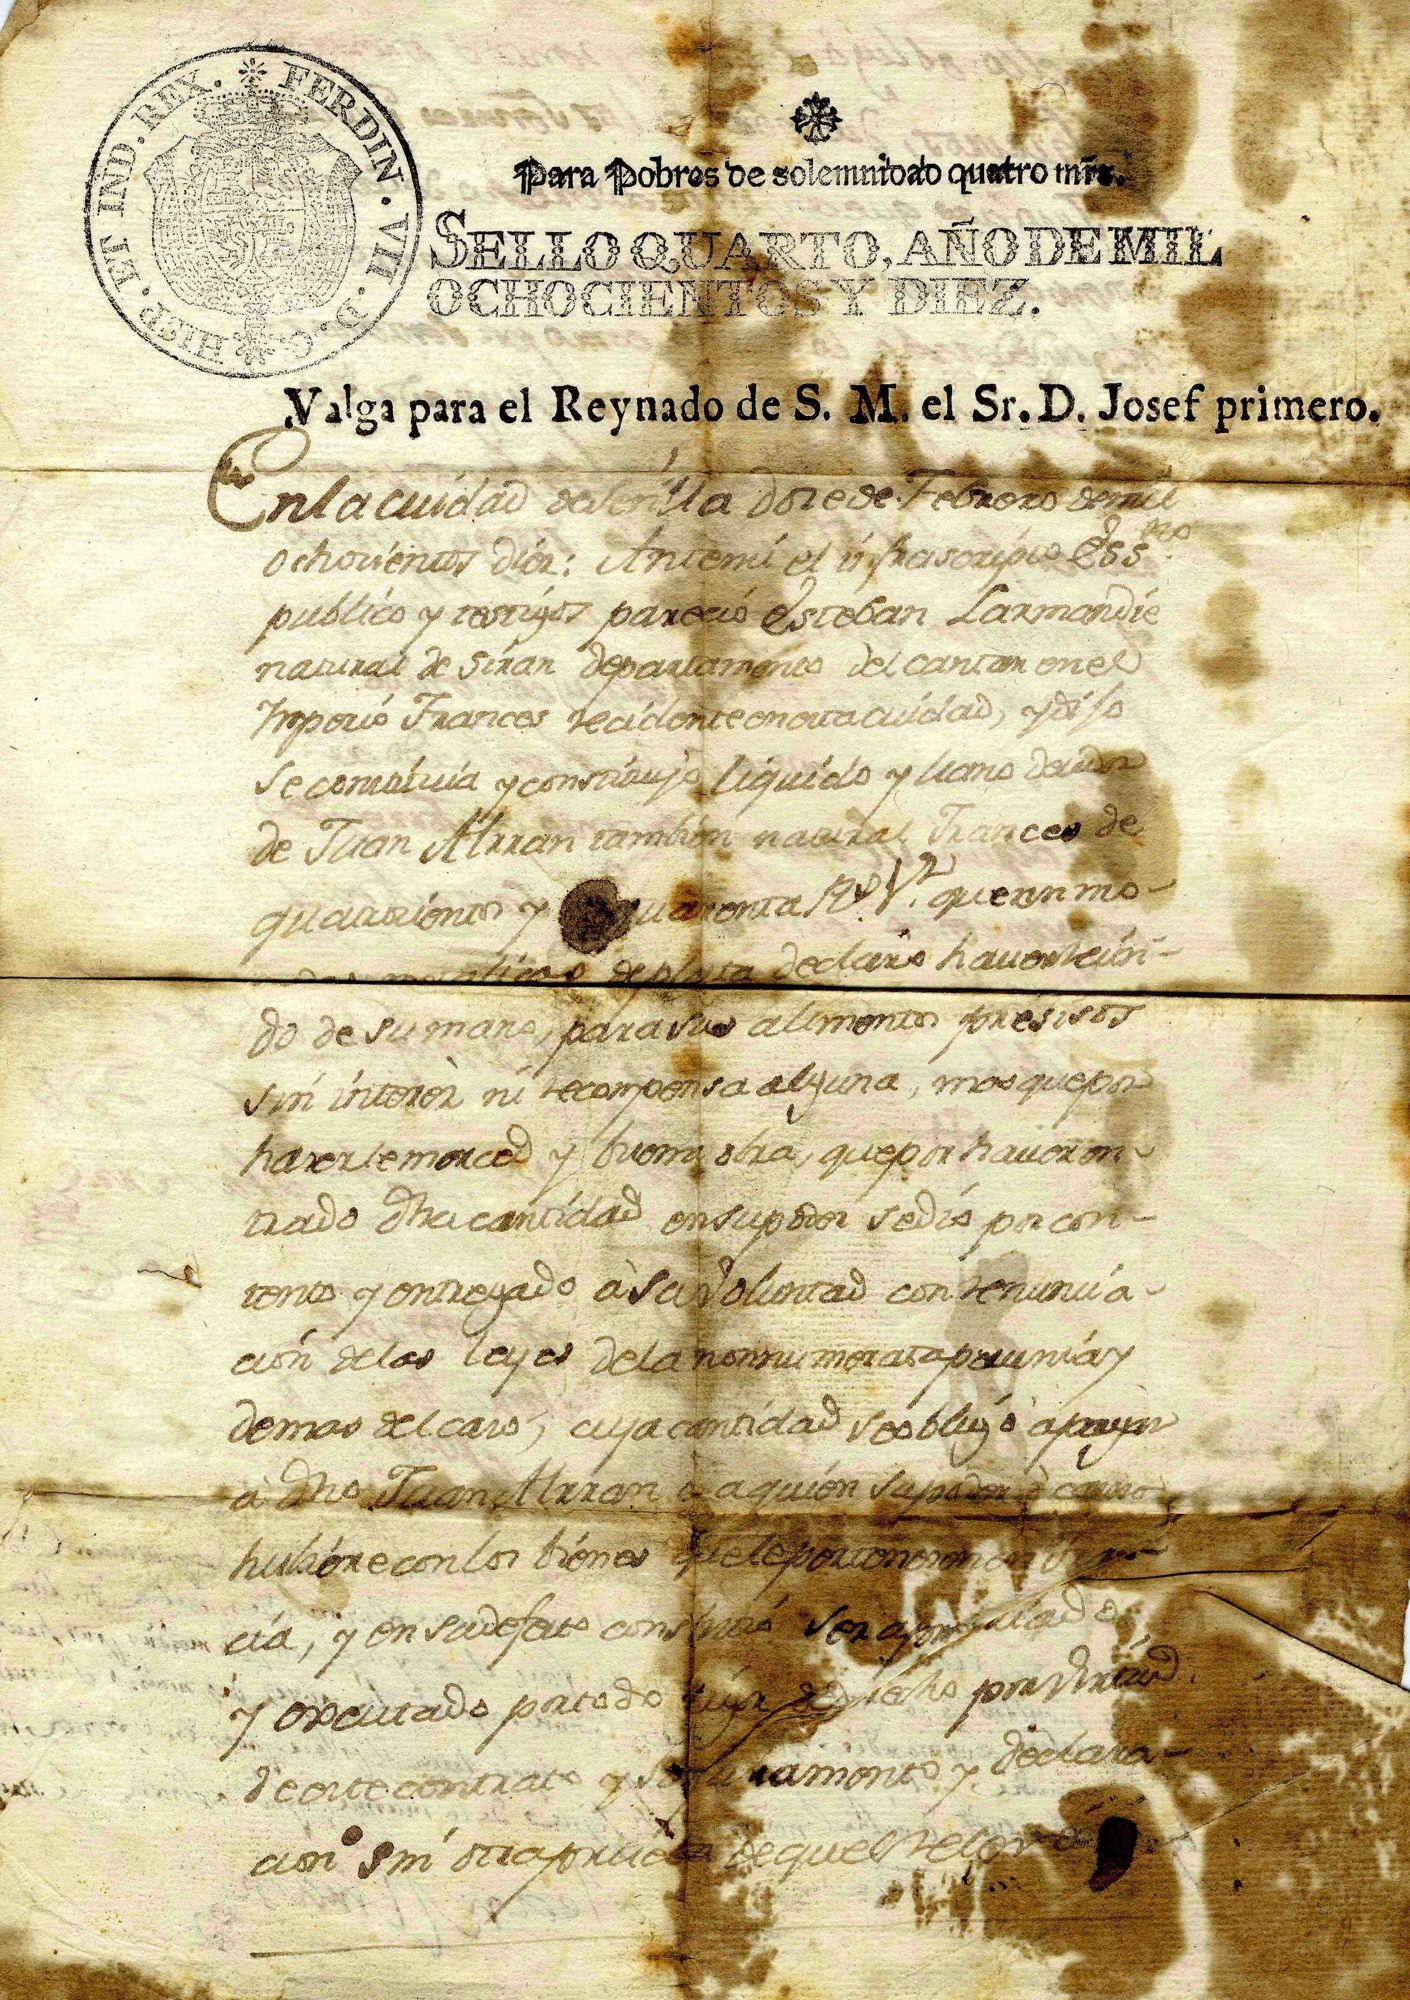 FERDIN. VII. D. G. HISP. ET IND. REX.
Para Pobres de solemnidad quatro mrs.
SELLO QUARTO, AÑO DE MIL
OCHOCIENTOS Y DIEZ.
Valga para el Reynado de S. M. el Sr. D. Josef primero.
En la cuidad de Sevilla dose de Febrero de mil
ochosientos dier: Antemi el infrascripto Ess.no
publico y testigos parecio Esteban Larmandie
natural de Siran departamento del cantar en el
Imperio Frances recidente en esta cuidad, y dijo
se constituia y constituyo liquido y llano deudor
de Juan Alrran tambien natural Frances de
quatrosientos y quarenta Rs. Vn. que en mo-
de plata declaro haver recivi-
do de su mano, para sus alimentos presisos
sin interes ni recompensa alguna, mas que por
harerle merced y buena obra, que por haver en-
trado dha cantidad en su poder se dio por con-
tento y entregado à su voluntad con renunia-
cion de las leyes de la non numerata pecunia y
demas del caso, cuya cantidad se obligo à pagar
à dho Juan Alrran o a quien su poder ò causa
hubiere con los bienes que le pertenescan en
cia, y en su defecto consintio ser apremiado
y executado por todo rigor de derecho por virtud
de este contrato y su juramento y declara-
cion sin otra prueba de que le releva